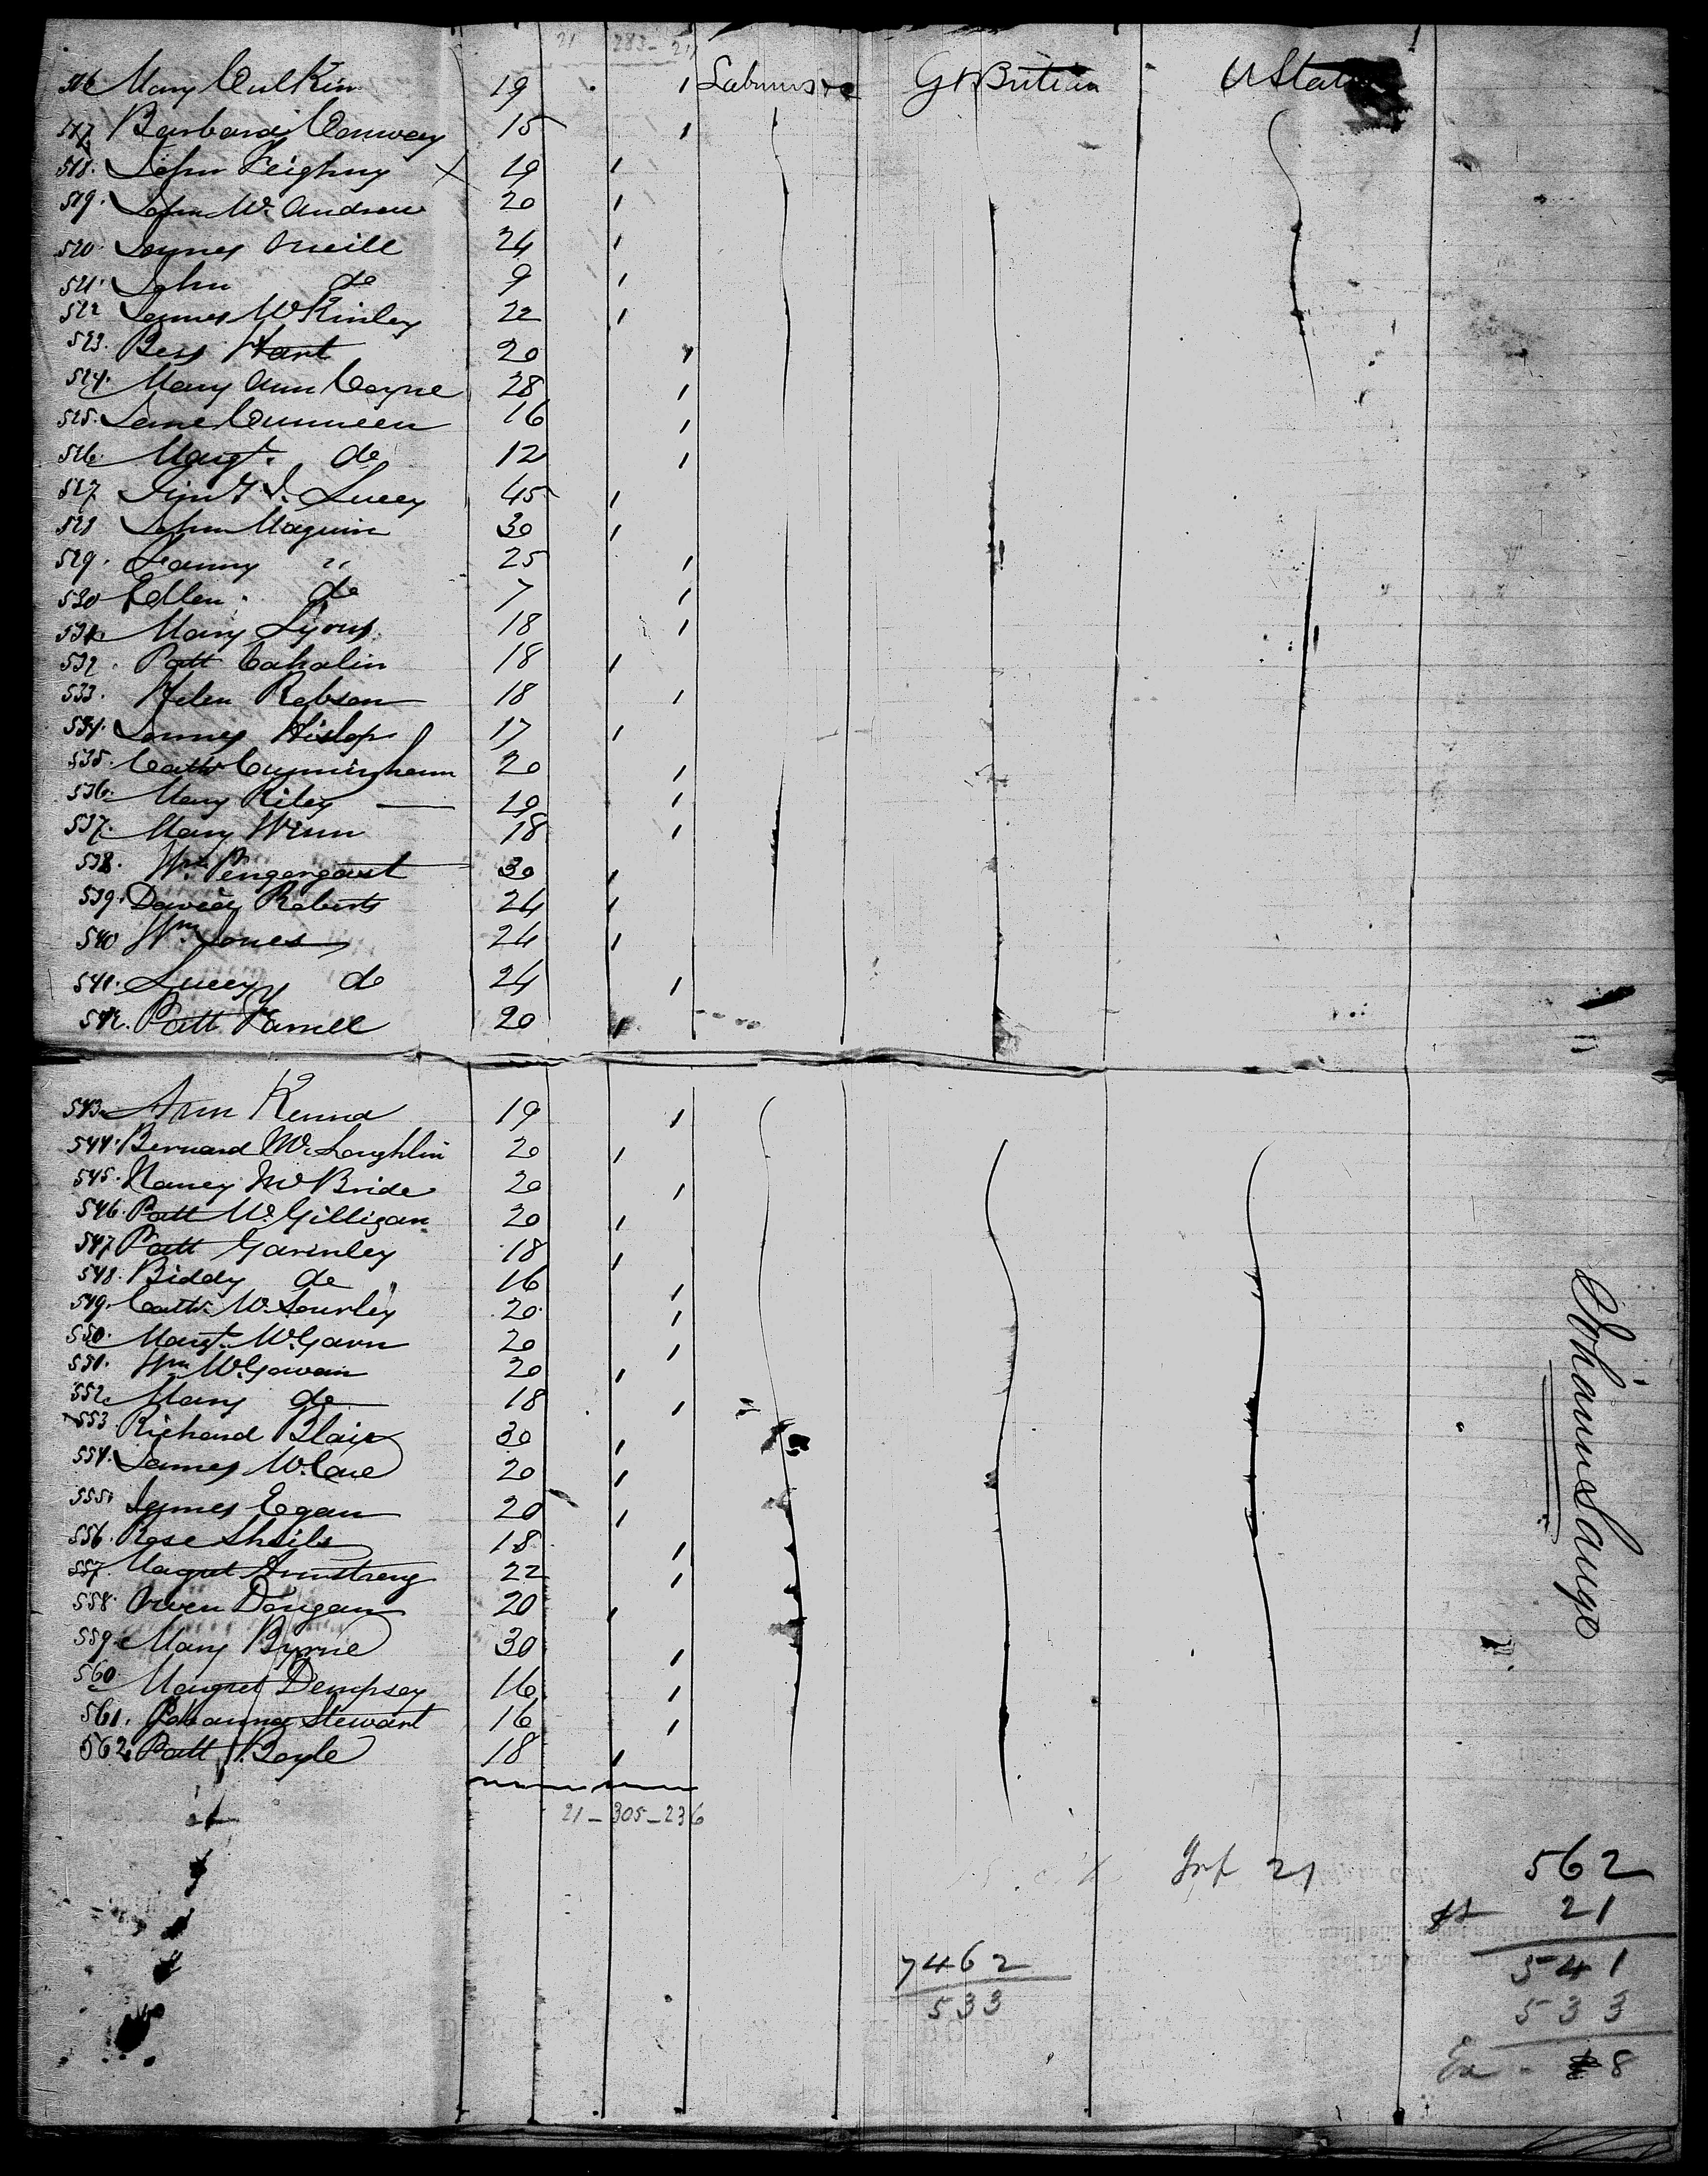 21 283-21
516 Mary Culkin 19 1 Labourers &c Gt Britian U States
517 Barbara Conway 15 1
518. John Feighny X 19 1
519. John Mc Andrew 20 1
520. James Oneill 24 1
521. John do 9 1
522 James McKinley 22 1
523. Bess Hart 20 1
524. Mary Ann Coyne 28 1
525. Jane Cunneen 16 1
526. Margt. do 12 1
527 J. Lucey 45 1
528 John Maguin 30 1
529. Fanny " 25 1
530 Ellen do 7 1
531. Mary Lyons 18 1
532. Patt Cahalin 18 1
533. Helen Robson 18 1
534. James Hislop 17 1
535. Cath Cunningham 20 1
536. Mary Riley — 19 1
537. Mary Winn 18 1
538. Wm Pengergast 30 1
539. David Roberts 24 1
540 Wm Jones 24 1
541. Lucey do 24 1
542. Patt Farrell 20 1
543. Ann Kenna 19 1
544. Bernard McLoughlin 20 1
545. Nancy McBride 20 1
546. Patt McGilligan 20 1
547. Patt Garinley 18 1
548. Biddy do 16 1
549. Cath McSourley 20 1
550. Margt. McGavn 20 1
551. Wm McGowan 20 1
552. Mary do 18 1
553. Richard Blair 30 1
554. James McCue 20 1
555. James Egan 20 1
556. Rose Sheils 18 1
557. Magret Armstrong 22 1
558. Owen Dougan 20 1
559. Mary Byrne 30 1
560 Magret Dempsey 16 1
561. Johanna Stewart 16 1
562. Patt Boyle 18 1
21-305-236
Inf 21
562
21
541
533
8
7462
533